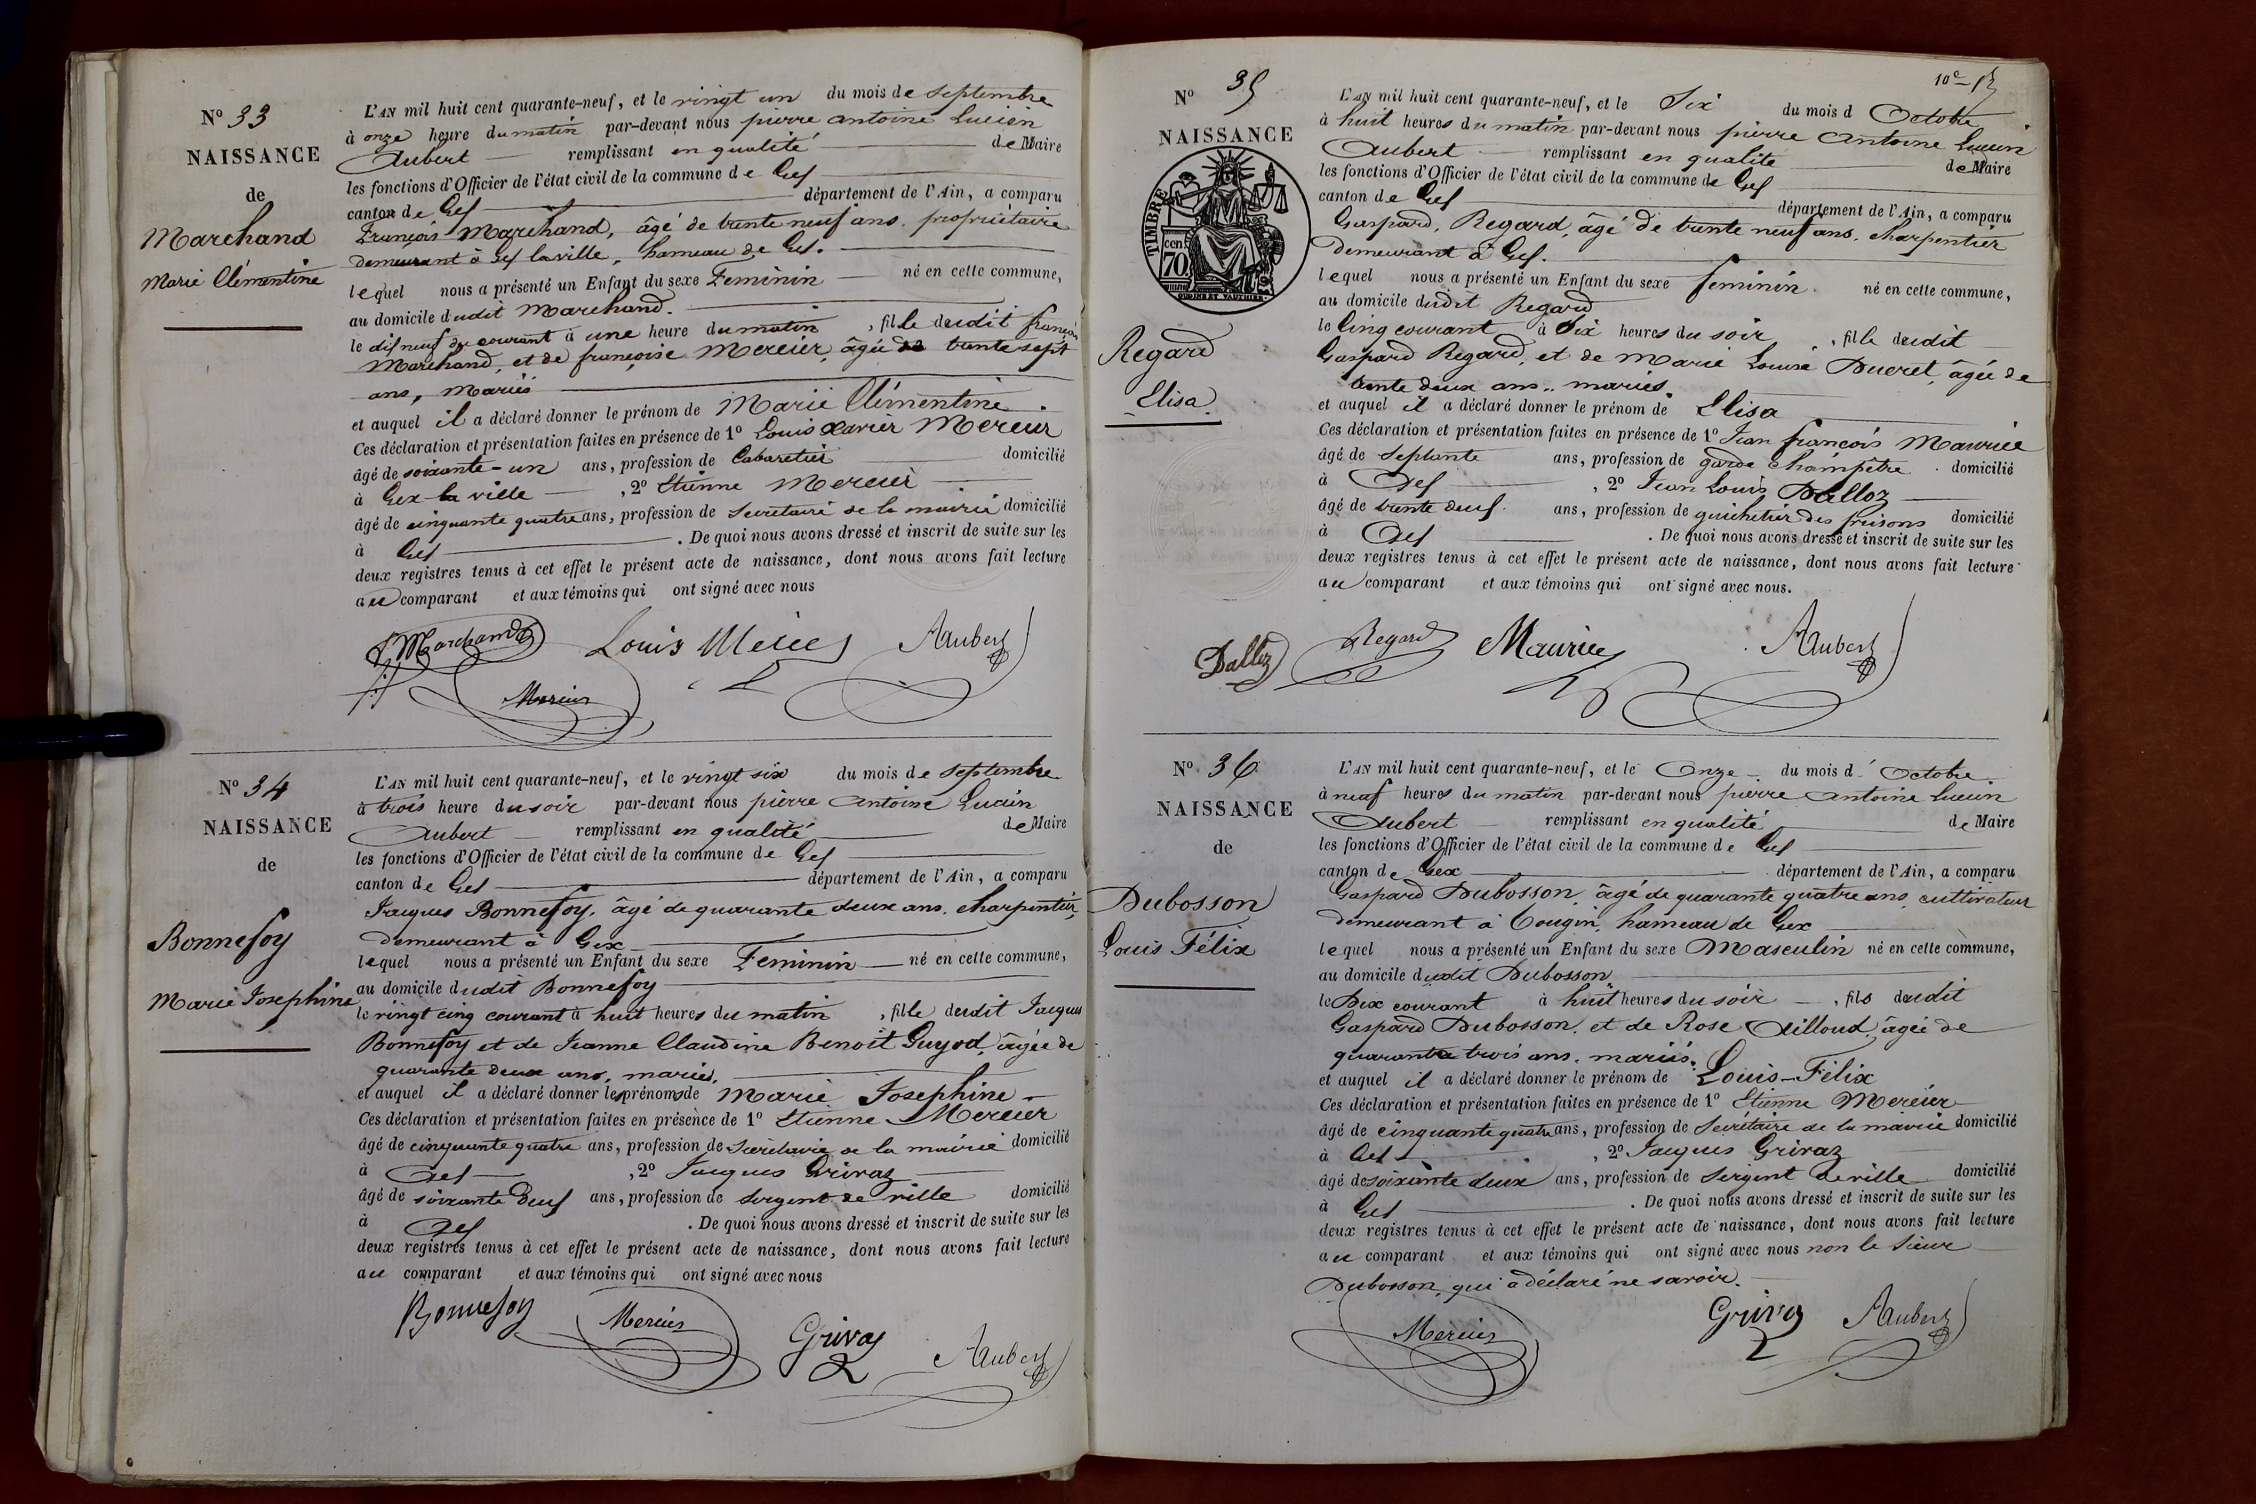 N° 33
NAISSANCE
de
Marchand
Marie Clémentine
L'AN mil huit cent quarante-neuf, et le vingt un du mois de septembre
à onze heure du matin par-devant nous pierre antoine Lucien
Aubert remplissant en qualité de Maire
les fonctions d'Officier de l'état civil de la commune de Gex
canton de Gex département de l'Ain, a comparu
François Marchand, âgé de trente neuf ans, propriétaire
demeurant à Gex la ville, hameau de Gex.
lequel nous a présenté un Enfant du sexe Féminin né en cette commune,
au domicile dudit Marchand.
le dix neuf du courant à une heure du matin, fille dudit françois
Marchand, et de françoise Mercier, âgée de trente sept
ans, mariés
et auquel il a déclaré donner le prénom de Marie Clémentine.
Ces déclaration et présentation faites en présence de 1° Louis Xavier Mercier
âgé de soixante-un ans, profession de Cabaretier domicilié
à Gex la ville, 2° Etienne Mercier
âgé de cinquante quatre ans, profession de Secrétaire de la mairie domicilié
à Gex. De quoi nous avons dressé et inscrit de suite sur les
deux registres tenus à cet effet le présent acte de naissance, dont nous avons fait lecture
au comparant et aux témoins qui ont signé avec nous
Marchand Louis Mercier AAubert
Mercier
N° 34
NAISSANCE
de
Bonnefoy
Marie Josephine
L'AN mil huit cent quarante-neuf, et le vingt six du mois de septembre
à trois heure du soir par-devant nous pierre antoine Lucien
Aubert remplissant en qualité de Maire
les fonctions d'Officier de l'état civil de la commune de Gex
canton de Gex département de l'Ain, a comparu
Jacques Bonnefoy, âgé de quarante deux ans, charpentier,
demeurant à Gex
lequel nous a présenté un Enfant du sexe Féminin né en cette commune,
au domicile dudit Bonnefoy
le vingt cinq courant à huit heures du matin, fille dudit Jacques
Bonnefoy et de Jeanne Claudine Benoit Guyod, âgée de
quarante deux ans, mariés,
et auquel il a déclaré donner les prénoms de Marie Josephine
Ces déclaration et présentation faites en présence de 1° Etienne Mercier
âgé de cinquante quatre ans, profession de Secrétaire de la mairie domicilié
à Gex, 2° Jacques Grivaz
âgé de soixante deux ans, profession de Sergent de ville domicilié
à Gex. De quoi nous avons dressé et inscrit de suite sur les
deux registres tenus à cet effet le présent acte de naissance, dont nous avons fait lecture
au comparant et aux témoins qui ont signé avec nous
Bonnefoy Mercier Grivaz AAubert
N° 35
NAISSANCE
TIMBRE
cen.
70
OUDINE ET VAUTHIER
Regard
Elisa
L'AN mil huit cent quarante-neuf, et le Six du mois d Octobre
à huit heures du matin par-devant nous pierre antoine Lucien
Aubert remplissant en qualité de Maire
les fonctions d'Officier de l'état civil de la commune de Gex
canton de Gex département de l'Ain, a comparu
Gaspard, Regard, âgé de trente neuf ans, charpentier
demeurant à Gex.
lequel nous a présenté un Enfant du sexe féminin né en cette commune,
au domicile dudit Regard
le Cinq courant à Six heures du soir, fille dudit
Gaspard Regard, et de Marie Louise Ducret, âgée de
trente deux ans, mariés,
et auquel il a déclaré donner le prénom de Elisa
Ces déclaration et présentation faites en présence de 1° Jean françois Maurice
âgé de septante ans, profession de garde champêtre domicilié
à Gex, 2° Jean Louis Dalloz
âgé de trente deux ans, profession de guichetier des prisons domicilié
à Gex. De quoi nous avons dressé et inscrit de suite sur les
deux registres tenus à cet effet le présent acte de naissance, dont nous avons fait lecture
au comparant et aux témoins qui ont signé avec nous.
Dalloz Regard Maurice AAubert
N° 36
NAISSANCE
de
Dubosson
Louis Félix
L'AN mil huit cent quarante-neuf, et le Onze du mois d' Octobre
à neuf heures du matin par-devant nous pierre antoine Lucien
Aubert remplissant en qualité de Maire
les fonctions d'Officier de l'état civil de la commune de Gex
canton de Gex département de l'Ain, a comparu
Gaspard Dubosson, âgé de quarante quatre ans, cultivateur
demeurant à Tougin, hameau de Gex
lequel nous a présenté un Enfant du sexe Masculin né en cette commune,
au domicile dudit Dubosson
le Dix courant à huit heures du soir, fils dudit
Gaspard Dubosson, et de Rose Ailloud, âgée de
quarante trois ans, mariés.
et auquel il a déclaré donner le prénom de Louis-Félix
Ces déclaration et présentation faites en présence de 1° Etienne Mercier
âgé de cinquante quatre ans, profession de Secrétaire de la mairie domicilié
à Gex, 2° Jacques Grivaz
âgé de soixante deux ans, profession de Sergent de ville domicilié
à Gex. De quoi nous avons dressé et inscrit de suite sur les
deux registres tenus à cet effet le présent acte de naissance, dont nous avons fait lecture
au comparant et aux témoins qui ont signé avec nous non le Sieur
Dubosson, qui a déclaré ne savoir.
Mercier Grivaz AAubert